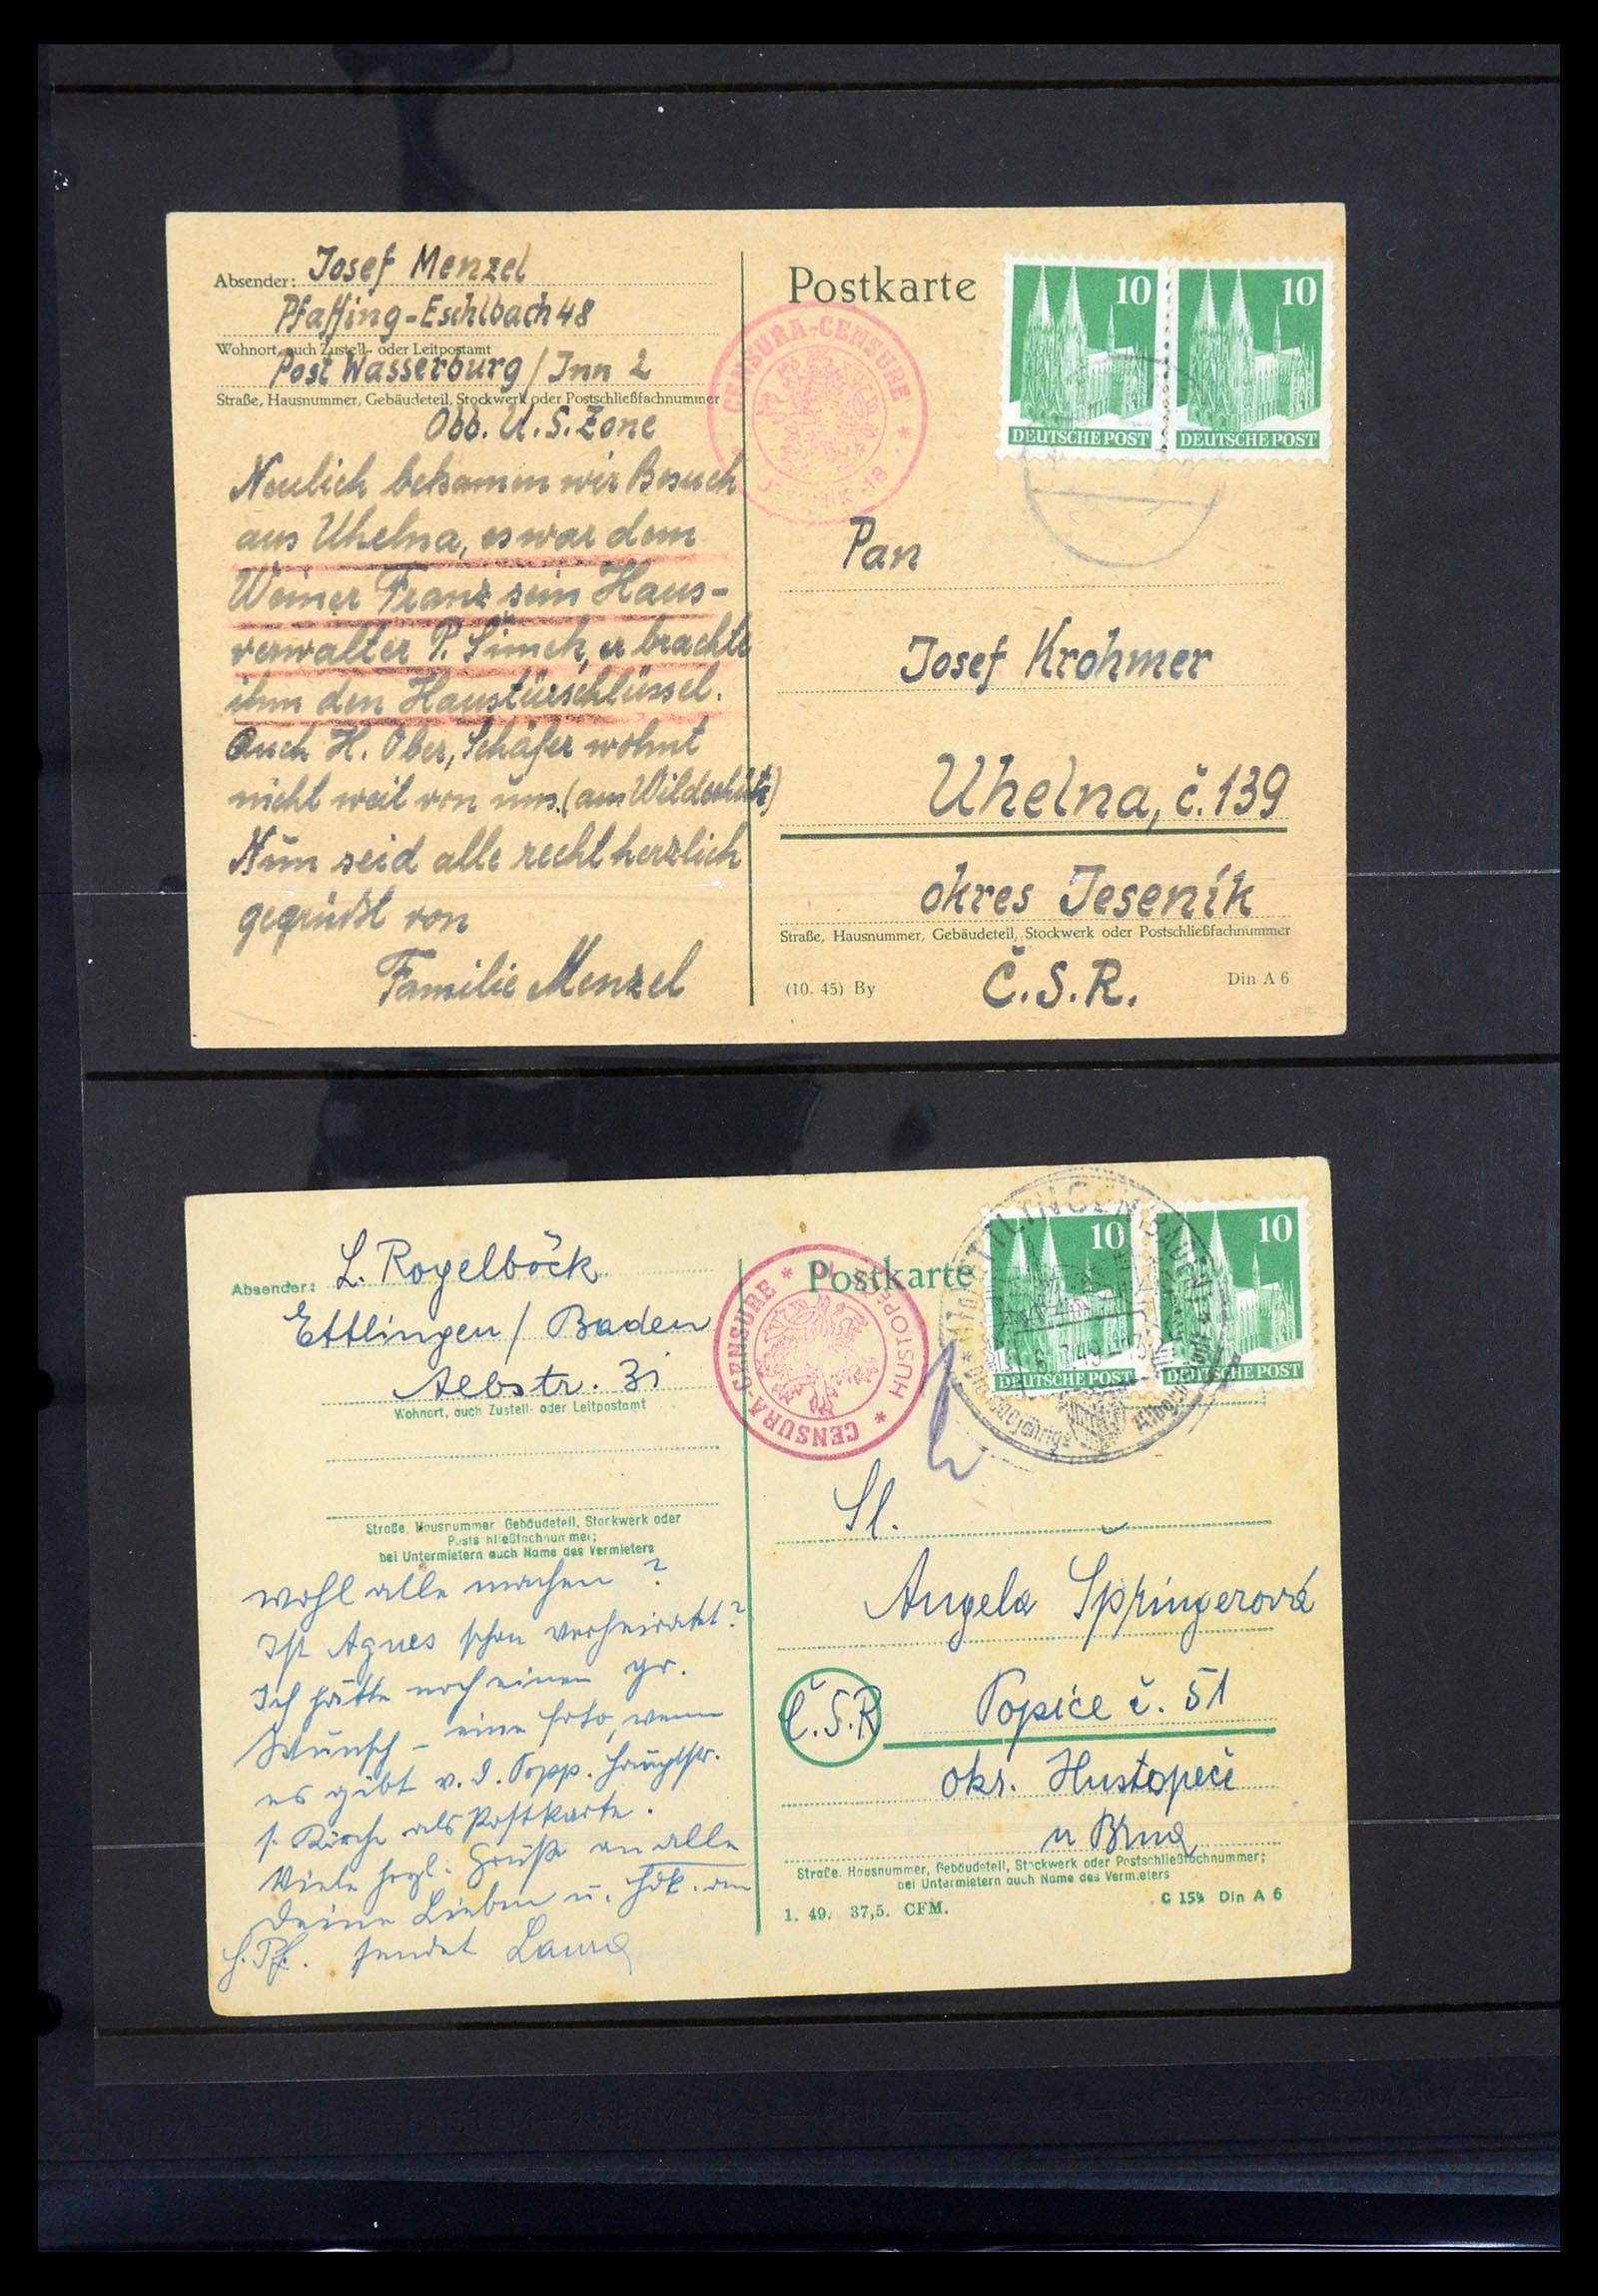 Absender: Josef Menzel
Pfaffing-Eschlbach 48
Wohnort, auch Zustell- oder Leitpostamt
Post Wasserburg / Inn 2
Straße, Hausnummer, Gebäudeteil, Stockwerk oder Postschließfachnummer
Obb. U.S. Zone
Neulich bekamen wir Besuch
aus Uhelna, es war dem
Weiner Franz sein Haus-
verwalter P. Simek, er brachte
ihm den Haustürschlüssel.
Auch H. Ober, Schäfer wohnt
nicht weit von uns. (am Wildschütz)
Nun seid alle recht herzlich
gegrüßt von
Familie Menzel
Postkarte
10
10
DEUTSCHE POST
DEUTSCHE POST
CENSURA-CENSURE
Pan
Josef Krohmer
Uhelna, č. 139
okres Jeseník
Straße, Hausnummer, Gebäudeteil, Stockwerk oder Postschließfachnummer
Č.S.R.
(10. 45) By
Din A 6
Absender: L. Rogelböck
Ettlingen / Baden
Albstr. 31
Wohnort, auch Zustell- oder Leitpostamt
Straße, Hausnummer, Gebäudeteil, Stockwerk oder
Postschließfachnummer;
bei Untermietern auch Name des Vermieters
wohl alle machen?
Ist Agnes schon verheiratet?
Ich hätte noch einen gr.
Wunsch – eine Foto, wenn
es gibt v. d. Popp. Hauptstr.
s. Kirche als Postkarte.
Viele herzl. Grüße an alle
Deine Lieben u. Hdk. am
sendet Laura
Postkarte
CENSURA-CENSURE * HUSTOPEČE
10
10
DEUTSCHE POST
DEUTSCHE POST
ETTLINGEN (BADEN)
Sl.
Angela Springerová
Č.S.R
Popice č. 51
okr. Hustopeče
u Brna
Straße, Hausnummer, Gebäudeteil, Stockwerk oder Postschließfachnummer;
bei Untermietern auch Name des Vermieters
1. 49. 37,5. CFM.
C 154 Din A 6